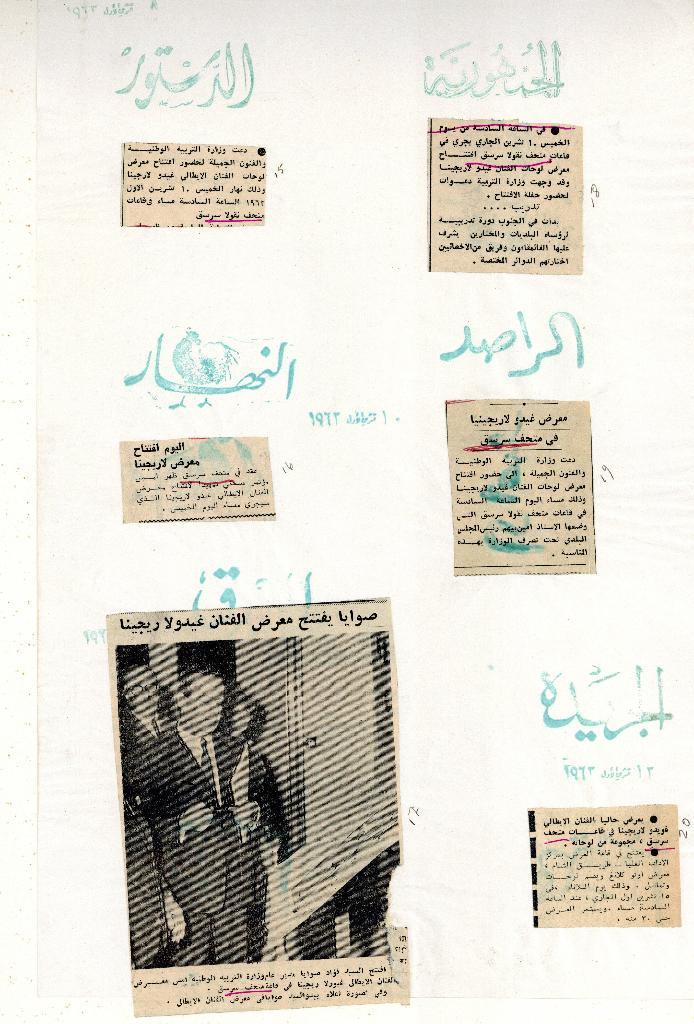 ٨ تشرين اول ١٩٦٣
الجمهورية
● في الساعة السادسة من يوم
الخميس ١٠ تشرين الجاري يجري في
قاعات متحف نقولا سرسق افتتاح
معرض لوحات الفنان غيدو لاريجينا
وقد وجهت وزارة التربية دعوات
لحضور حفلة الافتتاح .
تدريب . . . .
بدأت في الجنوب دورة تدريبية
لرؤساء البلديات والمختارين يشرف
عليها القائمقامون وفريق من الاخصائيين
اختارتهم الدوائر المختصة .
الدستور
● دعت وزارة التربية الوطنية
والفنون الجميلة لحضور افتتاح معرض
لوحات الفنان الايطالي غيدو لارجينا
وذلك نهار الخميس ١٠ تشرين الاول
١٩٦٣ الساعة السادسة مساء وقاعات
متحف نقولا سرسق
15
الراصد
معرض غيدو لاريجينيا
في متحف سرسق
دعت وزارة التربية الوطنية
والفنون الجميلة ، الى حضور افتتاح
معرض لوحات الفنان غيدو لاريجينا
وذلك مساء اليوم الساعة السادسة
في قاعات متحف نقولا سرسق التي
وضعها الاستاذ امين بيهم رئيس المجلس
البلدي تحت تصرف الوزارة بهذه
المناسبة .
19
النهار
١٠ تشرين اول ١٩٦٣
اليوم افتتاح
معرض لاريجينا
عقد في متحف سرسق ظهر امس
مؤتمر صحفي تمهيدا لافتتاح معرض
الفنان الايطالي غيدو لاريجينا الذي
سيجري مساء اليوم الخميس .
16
صوايا يفتتح معرض الفنان غيدولا ريجينا
افتتح السيد فؤاد صوايا مدير عام وزارة التربية الوطنية امس معرض
الفنان الايطالي غيدولا ريجينا في قاعة متحف سرسق .
وفي الصورة اعلاه يبدو السيد صوايا في معرض الفنان الايطالي .
17
الجريدة
١٢ تشرين اول ١٩٦٣
● يعرض حاليا الفنان الايطالي
غويدو لاريجينا في قاعات متحف
سرسق ، مجموعة من لوحاته .
● يفتتح في قاعة العرض بمركز
الآداب العليا ـ طريق الشام ،
معرض اوتو كلاغ ويضم لوحات
وتماثيل . وذلك يوم الثلاثاء في
١٥ تشرين اول الجاري ، عند الساعة
السادسة مساء ويستمر المعرض
حتى ٣٠ منه .
20